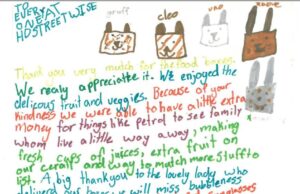 TO
EVERY
ONE AT
HDSTREETWISE
gruff
cleo
uno
Thank you very mutch for the food boxes.
We realy appreciatte it. We enjoyed the
delicous fruit and veggies. Because of your
kindness we were able to have a little extra
money for things like petrol to see family
whom live a little way away, making
fresh cups of juices, extra fruit on
our cereal and way to mutch more stuff to
list. A big thankyou to the lovely lady who
delivered our boxes will miss bubbleness